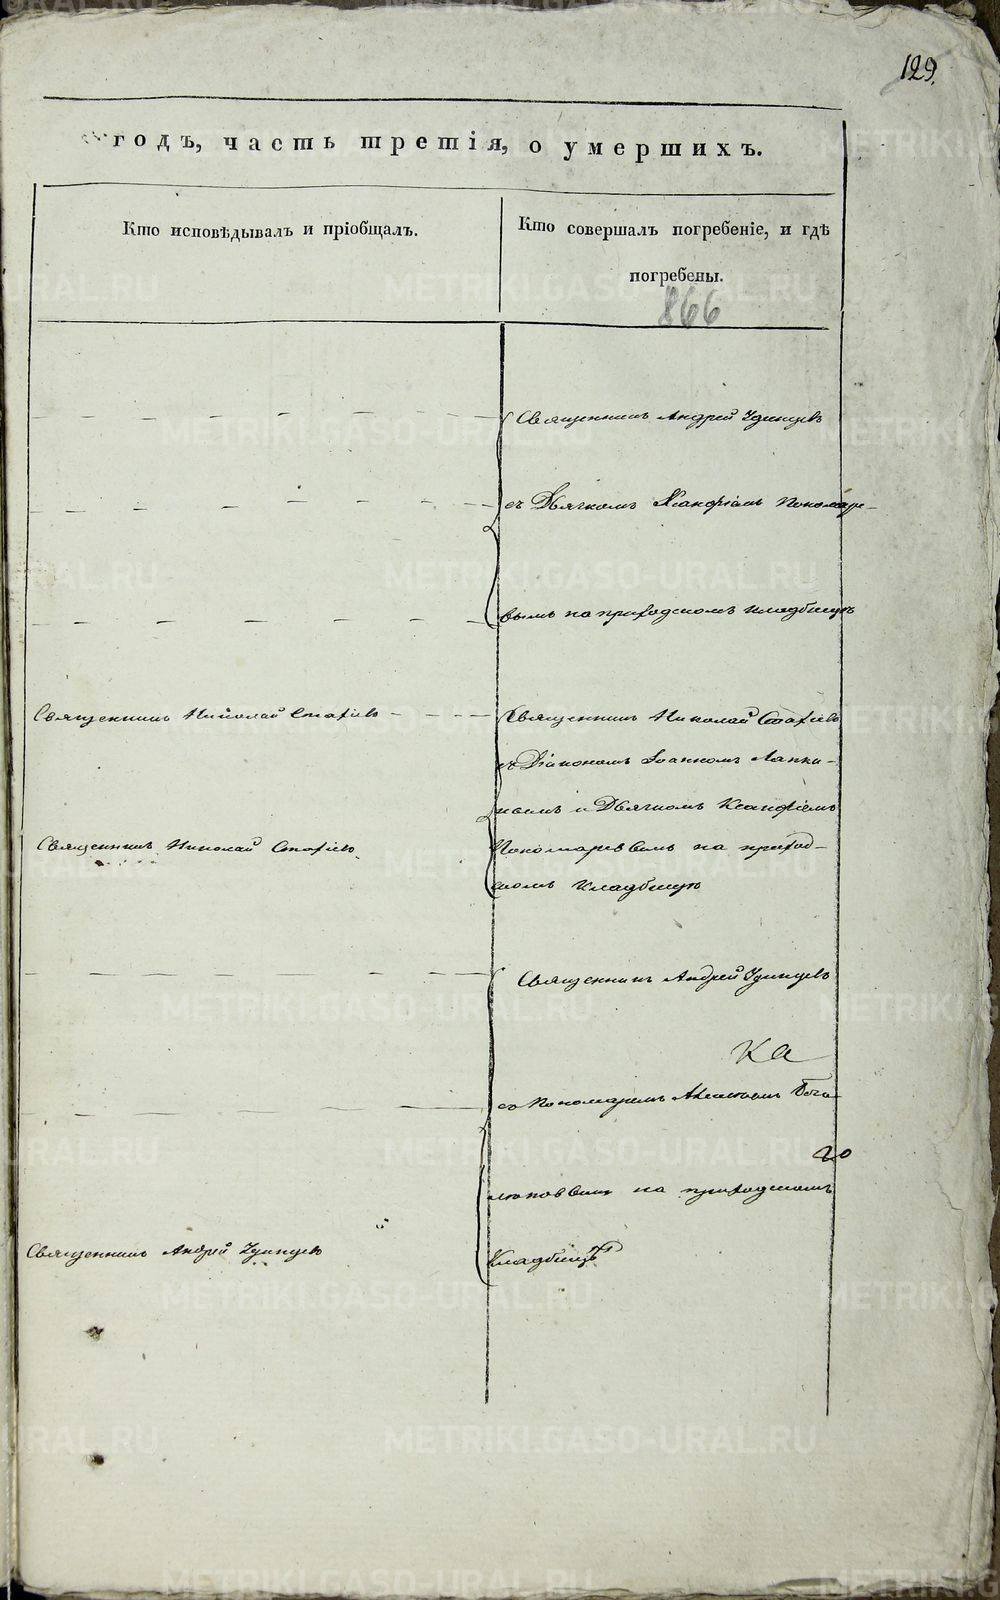 129.
годъ, часть третія, о умершихъ.
Кто исповѣдывалъ и пріобщалъ.
Кто совершалъ погребеніе, и гдѣ
погребены.
866
Священникъ Андрей Удинцевъ
съ Дьячкомъ Ксанфіемъ Пономаре-
вымъ на приходскомъ кладбищѣ
Священникъ Николай Стахіевъ
Священникъ Николай Стахіевъ
съ Діакономъ Іоанномъ
и Дьячкомъ Ксанфіемъ
Священникъ Николай Стахіевъ
Пономаревымъ на приход-
скомъ кладбищѣ
Священникъ Андрей Удинцевъ
Ка
съ Пономаремъ
го
на приходскомъ
Священникъ Андрей Удинцевъ
Кладбищѣ
METRIKI.GASO-URAL.RU